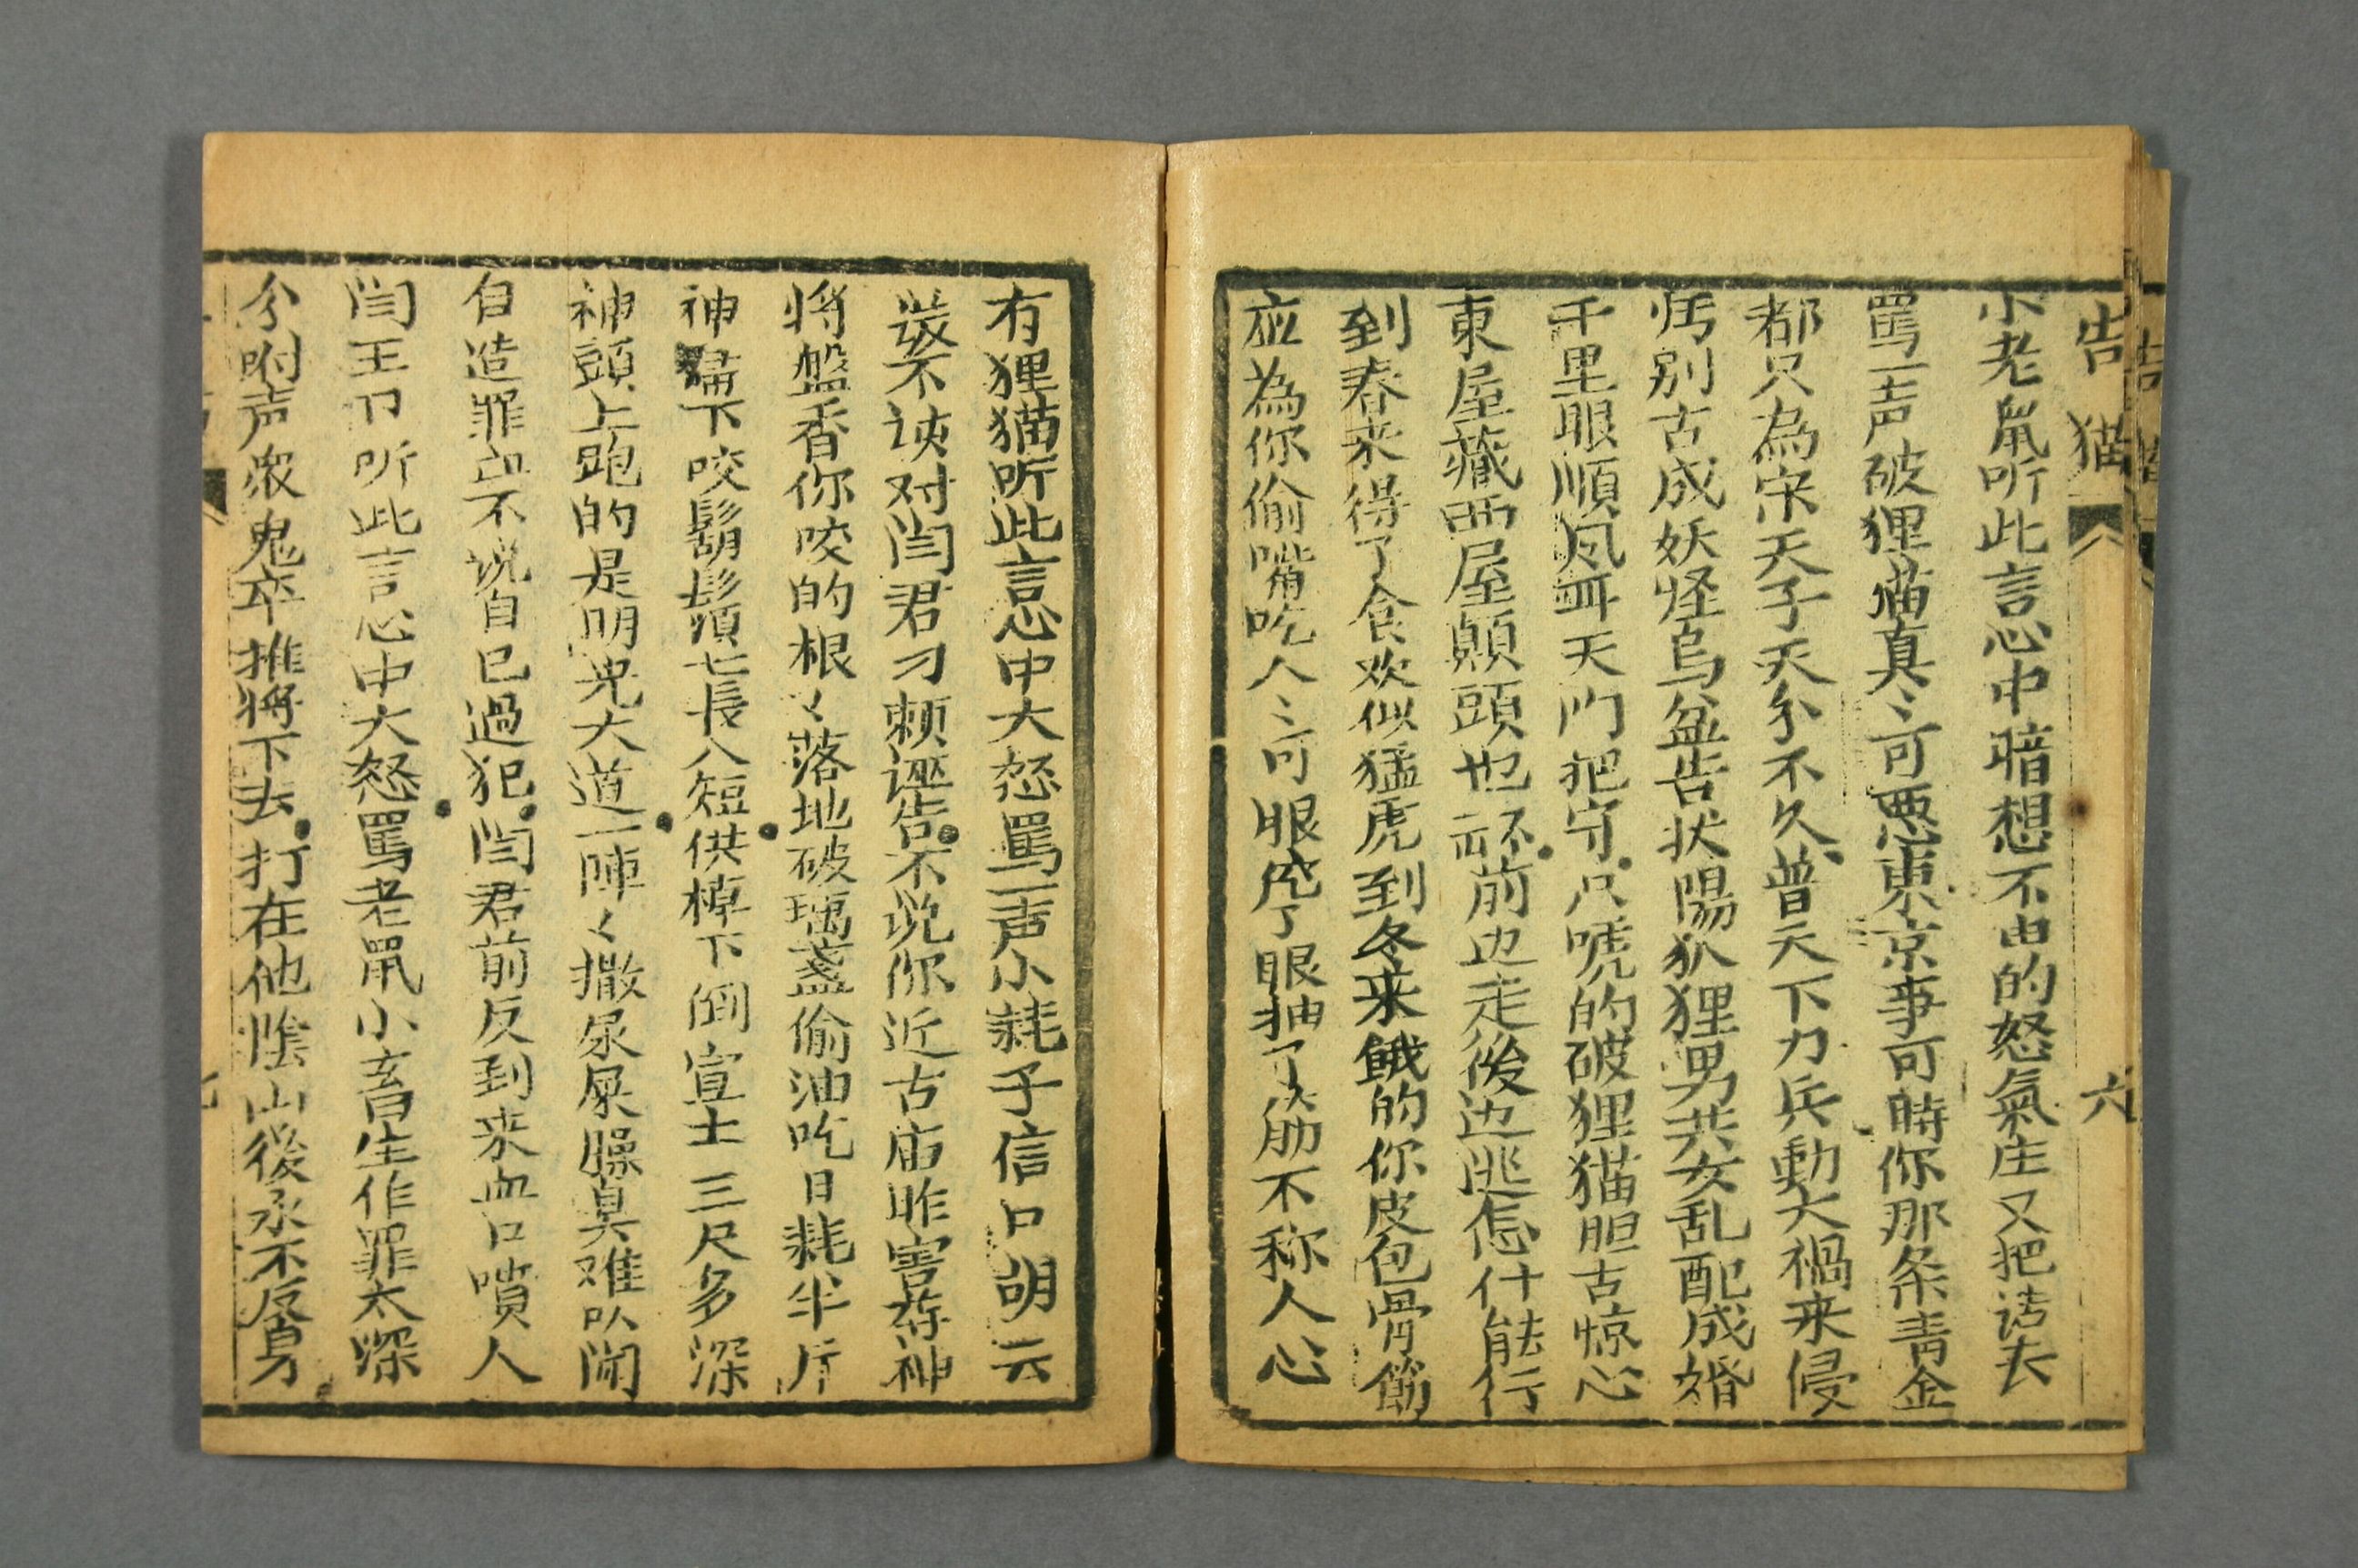 告猫 六
小老鼠听此言心中暗想不由的怒氣庄又把話去
罵一声破狸猫真〻可悪東京事可時你那条青金
都只為宋天子天分不久普天下刀兵動大禍来侵
別古成妖怪烏盆告状陽狐狸男共女乱配成婚
千里眼順风耳天门把守只唬的破狸猫胆古惊心
東屋藏西屋顛頭也不前边走後边逃怎什能行
到春来得了食欢似猛虎到冬来餓的你皮包骨筋
应為你偷嘴吃人〻可眼挖了眼抽了筋不称人心
有狸猫听此言心中大怒罵一声小耗子信口胡云
不该对闫君刁赖诬告不说你近古庙昨害莽神
将盤香你咬的根〻落地破璃盞偷油吃日耗半斤
神下咬鬍鬚七長八短供棹下倒宣土三尺多深
神頭上跑的是明光大道一陣〻撒尿屎臊臭难以闻
自造罪不说自己過犯闫君前反到来血口噴人
闫王听此言心中大怒罵老鼠小畜生作罪太深
分咐声衆鬼卒推将下去打在他陰山後永不反身